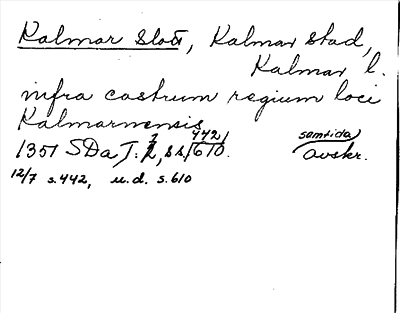 Kalmar Slott, Kalmar stad,
Kalmar l.
infra castrum regium loci
Kalmarnensis
1351 SDa I: 2, ss. 442/610. samtida avskr.
12/7 s.442, u.d. s.610